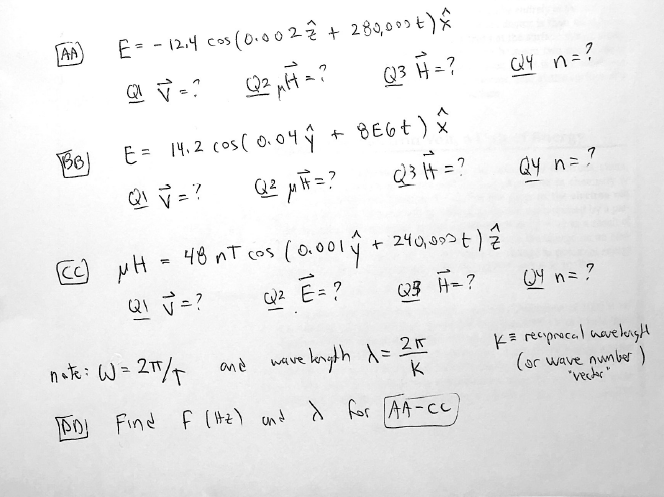 AA E = - 12.4 cos(0.002 ẑ + 280,000t) x̂
Q1 V⃗ = ? Q2 μH⃗ = ? Q3 H⃗ = ? Q4 n = ?
BB E = 14.2 cos(0.04 ŷ + 8E6t) x̂
Q1 V⃗ = ? Q2 μH⃗ = ? Q3 H⃗ = ? Q4 n = ?
CC μH = 48 nT cos (0.001 ŷ + 240,000t) ẑ
Q1 V⃗ = ? Q2 E⃗ = ? Q3 H⃗ = ? Q4 n = ?
note: ω = 2π/T and wavelength λ = 2π/K K ≡ reciprocal wavelength
(or wave number)
"vector"
DD Find f (Hz) and λ for AA-CC